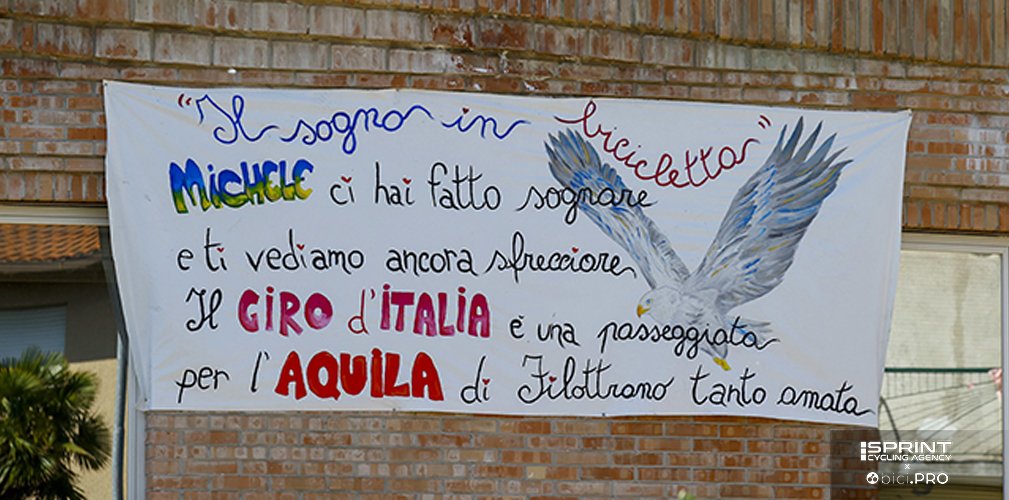 "Il sogno in bicicletta"
MiCHELE ci hai fatto sognare
e ti vediamo ancora sfrecciare
Il GiRO d'iTALIA è una passeggiata
per l'AQUiLA di Filottrano tanto amata
SPRINT
CYCLING AGENCY
x
bici.PRO